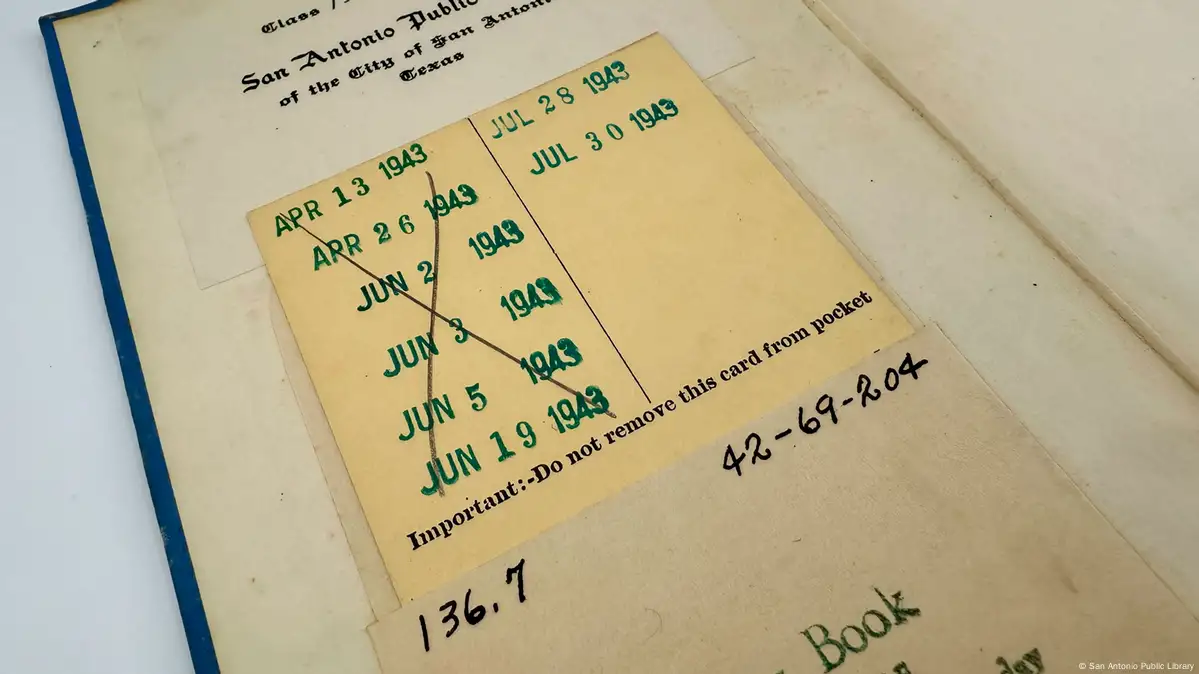 Class
San Antonio Public
of the City of San Antonio
Texas
APR 13 1943
APR 26 1943
JUN 2 1943
JUN 3 1943
JUN 5 1943
JUN 19 1943
JUL 28 1943
JUL 30 1943
Important:-Do not remove this card from pocket
42-69-204
136.7
Book
day
© San Antonio Public Library